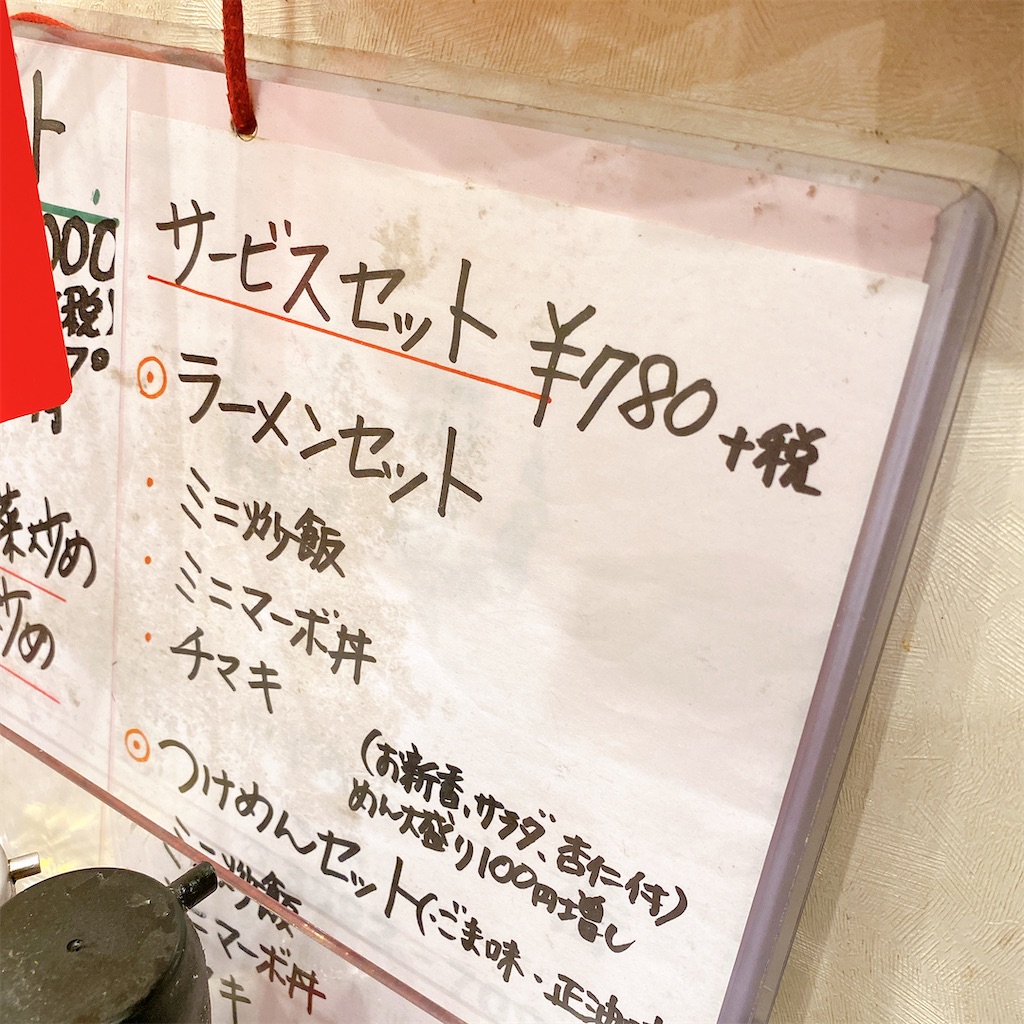 サービスセット ¥780+税
◎ラーメンセット
・ミニ炒飯
・ミニマーボ丼
・チマキ
(お新香、サラダ、杏仁付)
めん大盛り100円増し
◎つけめんセット(・ごま味・正油
ミニ炒飯
ミニマーボ丼
マキ
ト
000
税)
菜炒め
炒め